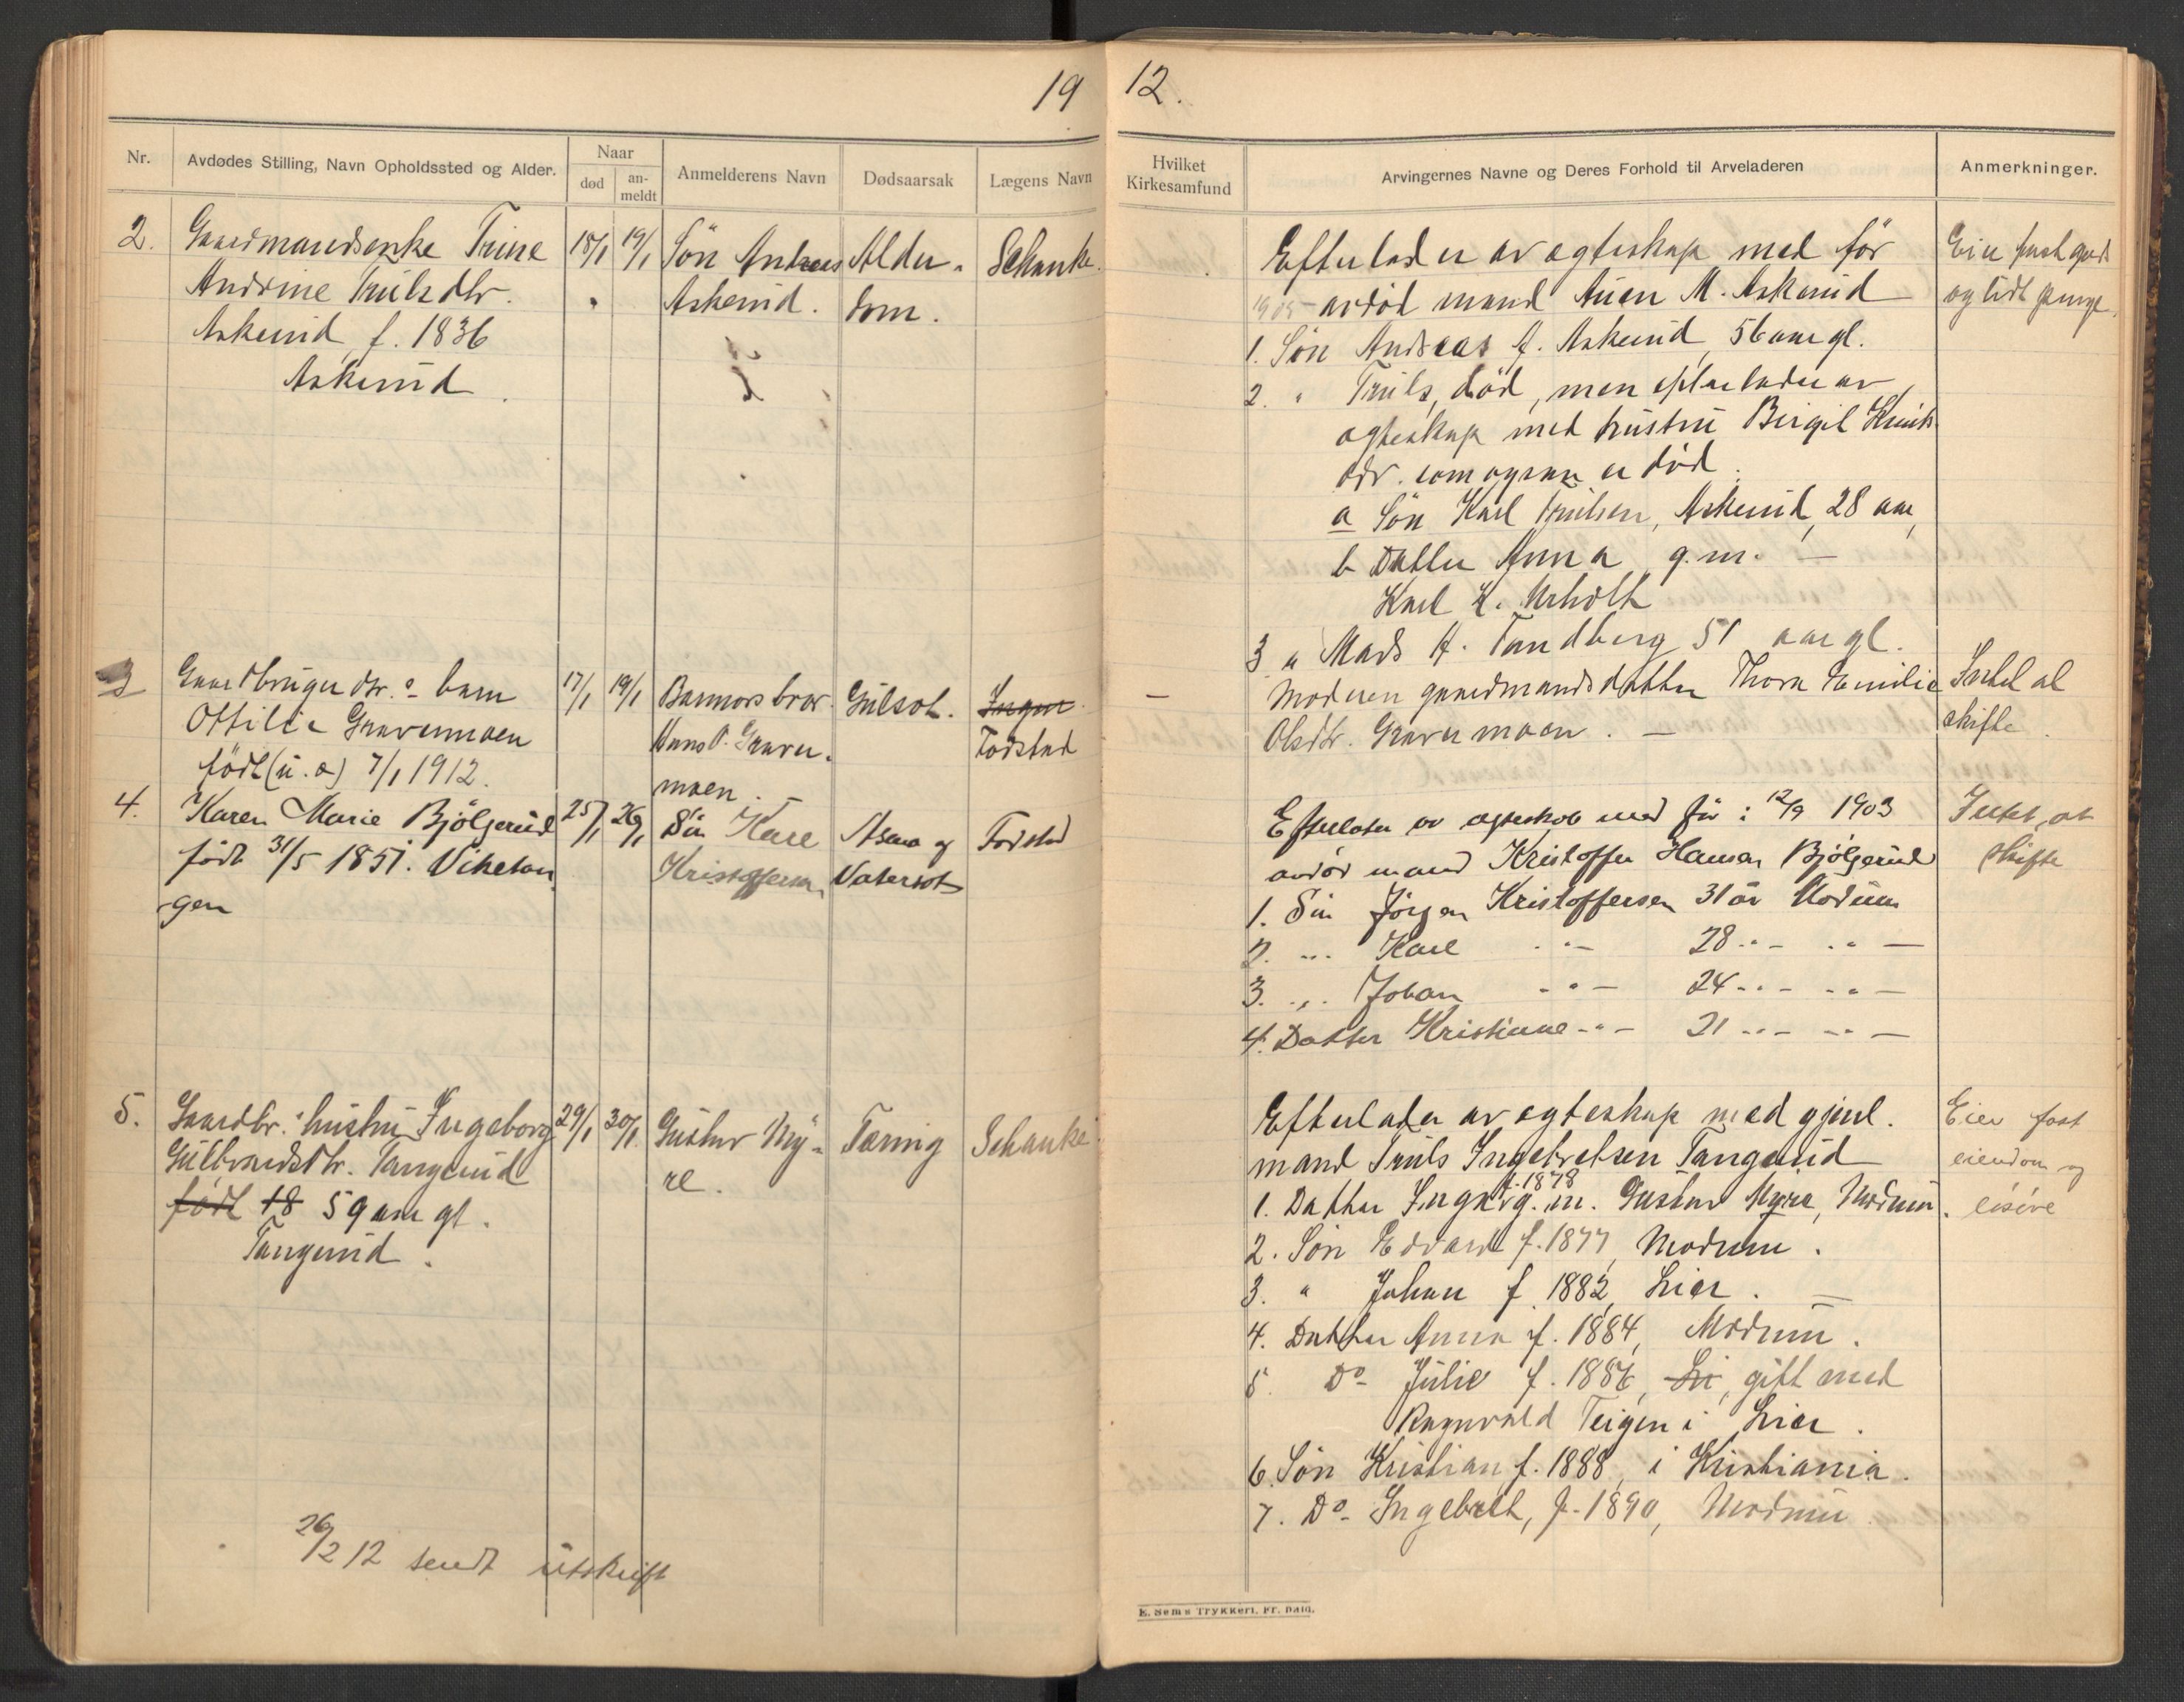 19
12.
Nr.
Avdødes Stilling, Navn Opholdssted og Alder.
Naar
død
an-
meldt
Anmelderens Navn
Dødsaarsak
Lægens Navn
Hvilket
Kirkesamfund
Arvingernes Navne og Deres Forhold til Arveladeren
Anmerkninger.
2. Gaardmandsenke Trine
Andrine Trulsdtr.
Askerud, f. 1836
Askerud
18/1 19/1
Søn Andreas
Askerud.
Alder-
dom.
Schanke.
Efterlader av egteskap med før
avdød mand Auen M. Askerud
1. Søn Andreas A. Askerud, 56 aar gl.
2. " Truls, død, men efterlader av
egteskap med hustru Birgit
som ogsaa er død.
a Søn Karl Trulsen, Askerud, 28 aar,
b Datter Anna, g.m. —
Karl K.
3 " Mads A. Tandberg 51 aar gl.
Eier fast gods
og lidt penge.
3 Gaardbruger dtr.s barn
Otilie Gravermoen
født (u.æ) 7/1 1912.
17/1 19/1
Barnets bror
Hans P. Graver-
moen.
Gulsot.
Ingen.
Todstad
—
Moderen gaardmandsdatter Thora Emilie
Olsdtr. Gravermoen. —
Intet at
skifte.
4. Karen Marie Bjölgerud
født 31/5 1851. Vikesan
gen
25/1 26/1
Søn Karl
Kristoffersen
Asma og
Vatersot
Todstad
Efterlater av egteskab med før: 12/9 1903
avdød mand Kristoffer Hansen Bjölgerud
1. Søn Jörgen Kristoffersen 31 år Modum
2. ... Karl .. — 28 .. — .. —
3. ... Johan .. — 24 .. — .. —
4. Datter Kristianne .. — 21 .. — .. —
Intet at
skifte
5. Gaardbr.s hustru Ingeborg
Gulbrandsdtr. Tangerud
født 18 59 aar gl.
Tangerud.
29/1 30/1.
Gustav My-
re.
Tæring
Schanke
Efterlader av egteskap med gjenl.
mand Truls Ingebretsen Tangerud
f. 1878
1. Datter Inga g. m. Gustav Myre, Modum.
2. Søn Edvard f. 1877, Modum.
3. " Johan f. 1882, Lier. —
4. Datter Anna f. 1884, Modum.
5. Do- Julie f. 1886, Li, gift med
Ragnvald Teigen i Lier.
6. Søn Kristian f. 1888, i Kristiania.
7. Do- Ingebret, f. 1890, Modum.
Eier fast
eiendom og
løsøre
26/2 12 sendt utskrift
E. Sem's Trykkeri, Fr. hald.